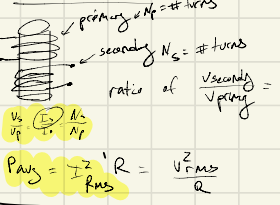 primary Np = # turns
secondary Ns = # turns
ratio of Vsecondy / Vprimy =
Vs/Vp = Is/Io = Ns/Np
Pavg = I²Rms R = V²rms / R